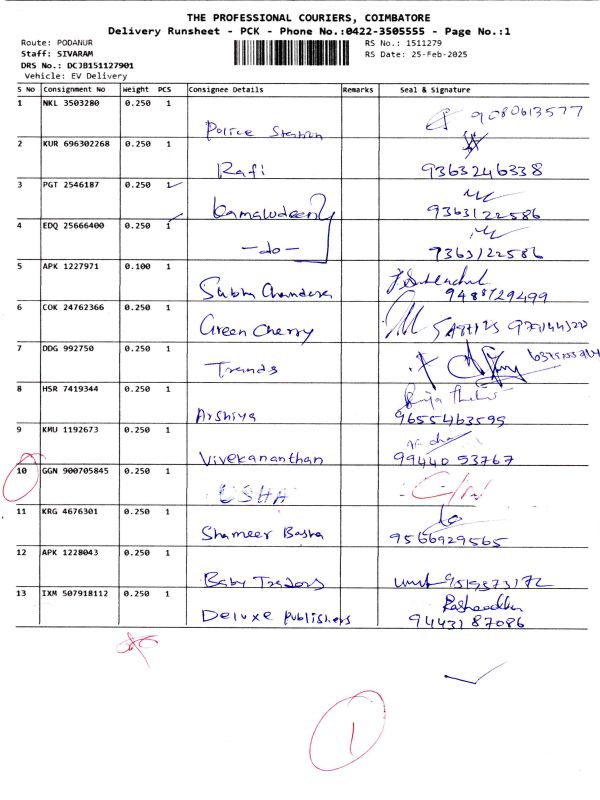 THE PROFESSIONAL COURIERS, COIMBATORE
Delivery Runsheet - PCK - Phone No.:0422-3505555 - Page No.:1
Route: PODANUR
RS No.: 1511279
Staff: SIVARAM
RS Date: 25-Feb-2025
DRS No.: DCJB151127901
Vehicle: EV Delivery
S No Consignment No Weight PCS Consignee Details Remarks Seal & Signature
1 NKL 3503280 0.250 1
Police Station 9080613577
2 KUR 696302268 0.250 1
Rafi 9363246338
3 PGT 2546187 0.250 1
Kamaludeen 9363122586
4 EDQ 25666400 0.250 1
-do- 9363122586
5 APK 1227971 0.100 1
Subha Chandra 9488729499
6 COK 24762366 0.250 1
Green Cherry
7 DDG 992750 0.250 1
Trends
8 HSR 7419344 0.250 1
Arshiya 9655463595
9 KMU 1192673 0.250 1
Vivekananthan 9944053767
10 GGN 900705845 0.250 1
USHA
11 KRG 4676301 0.250 1
Shameer Basha 9566929565
12 APK 1228043 0.250 1
Baby Traders
13 IXM 507918112 0.250 1
Deluxe Publishers 9443187086
1